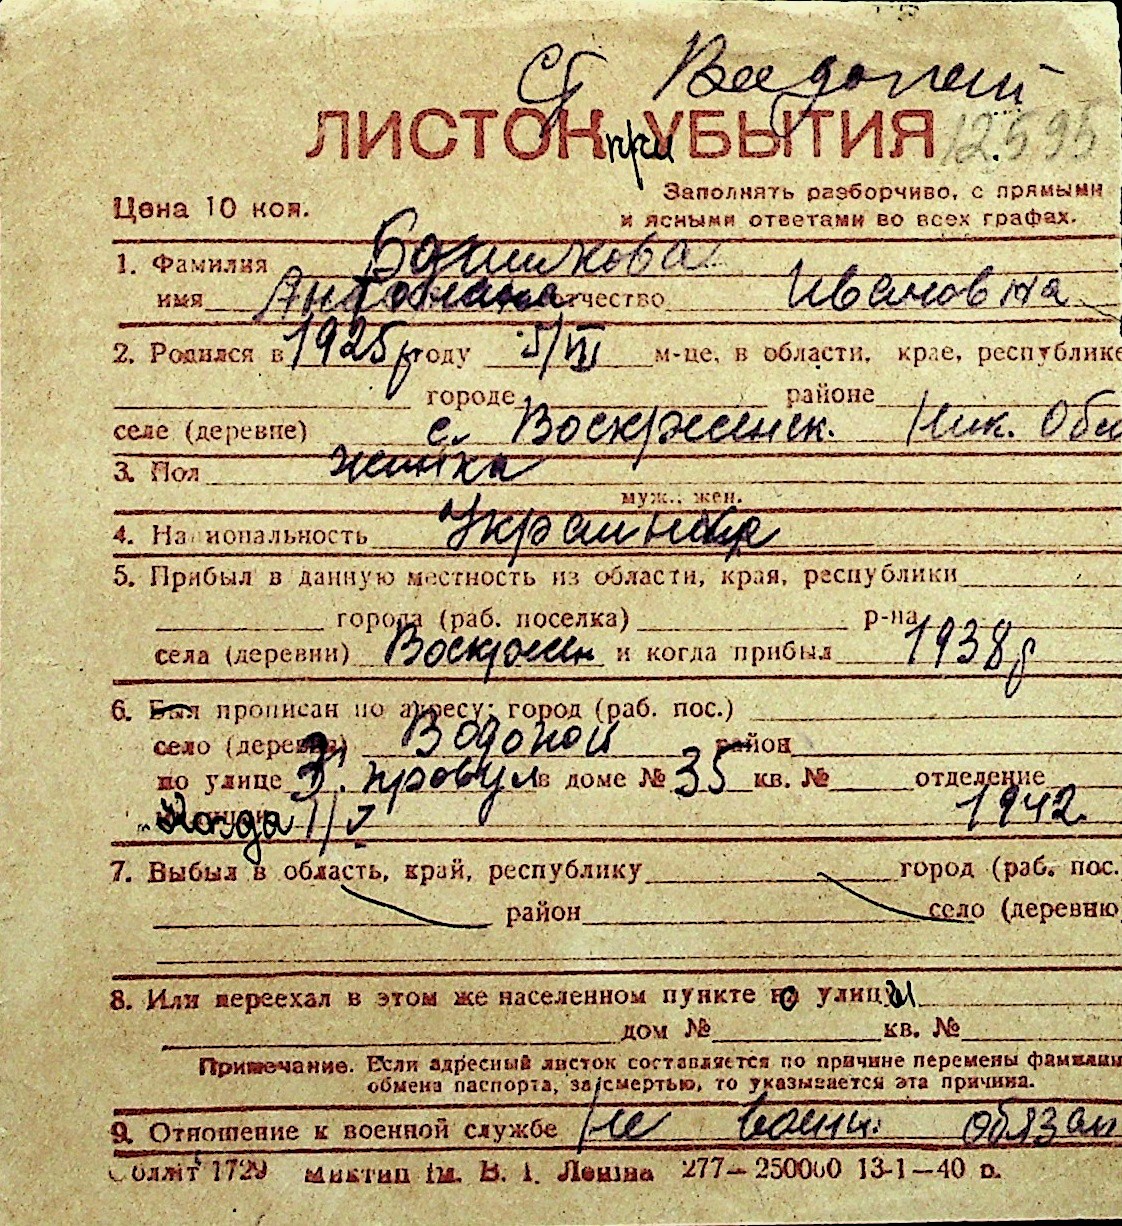 Ст Водопой
ЛИСТОК при УБЫТИЯ 12.595
Цена 10 коп.
Заполнять разборчиво, с прямыми
и ясными ответами во всех графах.
1. Фамилия
имя Антонина отчество Ивановна
2. Родился в 1925 г году 5/III м-це, в области, крае, республике
городе районе
селе (деревне) с. Воскресенск. Ник. Обл
3. Пол жінка
муж., жен.
4. Национальность Українка
5. Прибыл в данную местность из области, края, республики
города (раб. поселка) р-на
села (деревни) Воскресен и когда прибыл 1938 г
6. Был прописан по адресу: город (раб. пос.)
село (деревня) Водопой район
по улице 3. провул в доме № 35 кв. № отделение
Когда 1/V 1942
7. Выбыл в область, край, республику город (раб. пос.
район село (деревню
8. Или переехал в этом же населенном пункте со улицы
дом № кв. №
Примечание. Если адресный листок составляется по причине перемены фамилии
обмена паспорта, за смертью, то указывается эта причина.
9. Отношение к военной службе Не воен. обязан
Облліт 1729 Миктип ім. В. І. Леніна 277—250000 13-1—40 р.